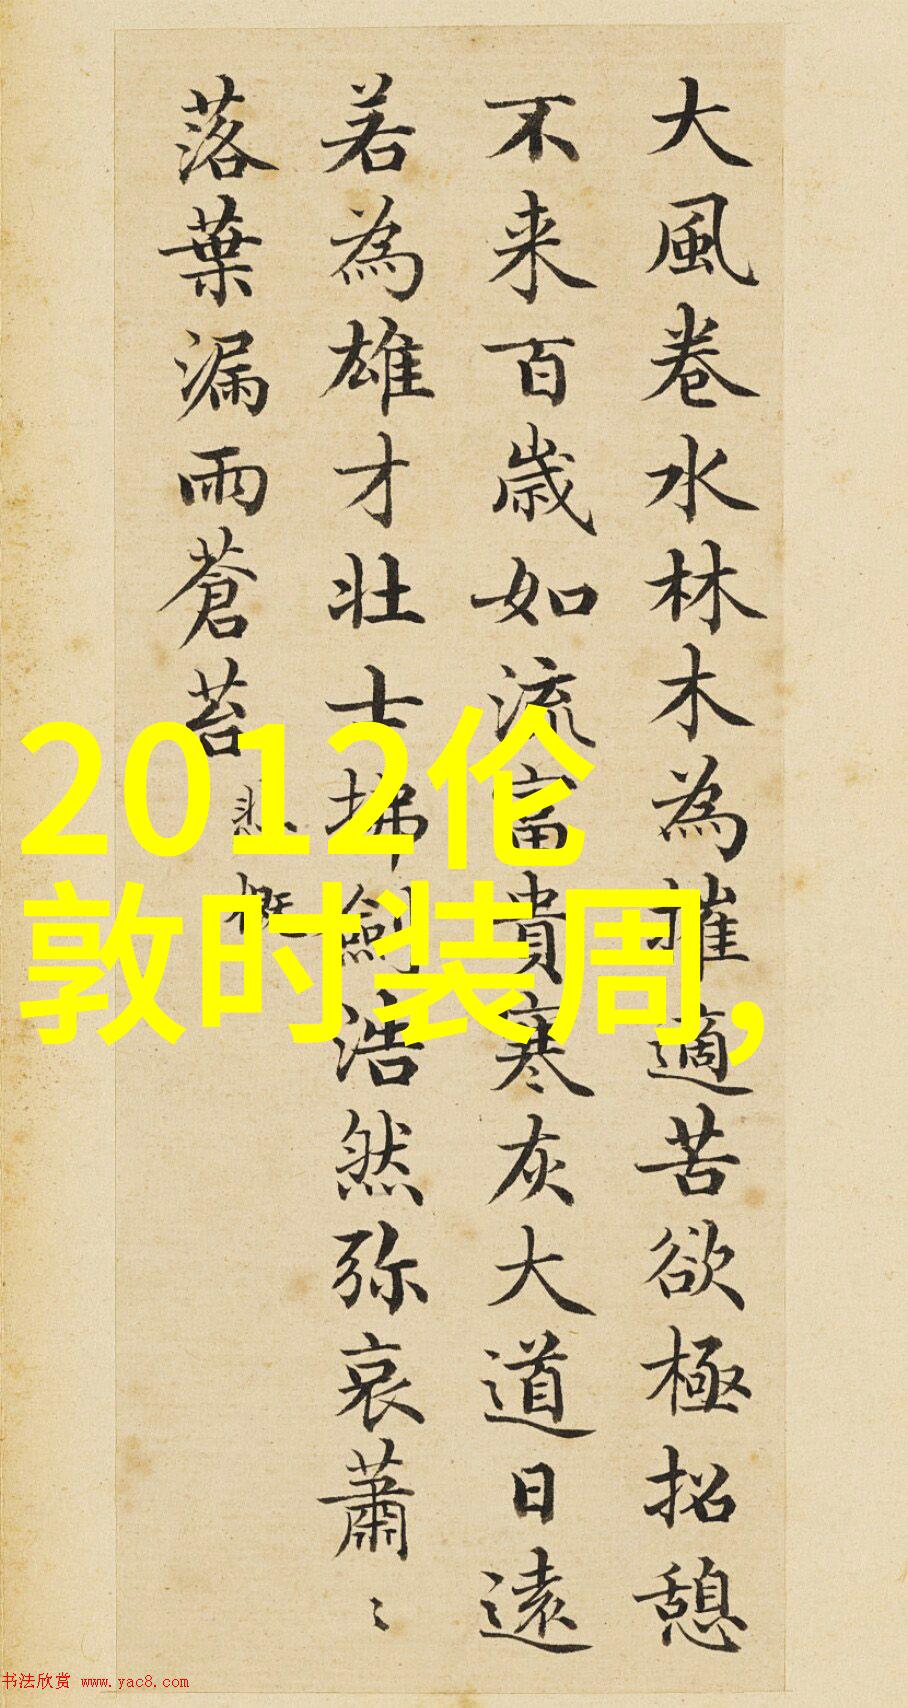 大風卷水林木為摧適苦欲極招憩
不来百歳如流富貴寒灰大道日遠
若為雄才壮士拂劍浩然弥哀蕭〻
落葉漏雨蒼苔
悲概
2012伦
敦时装周,
书法欣赏 www.yac8.com